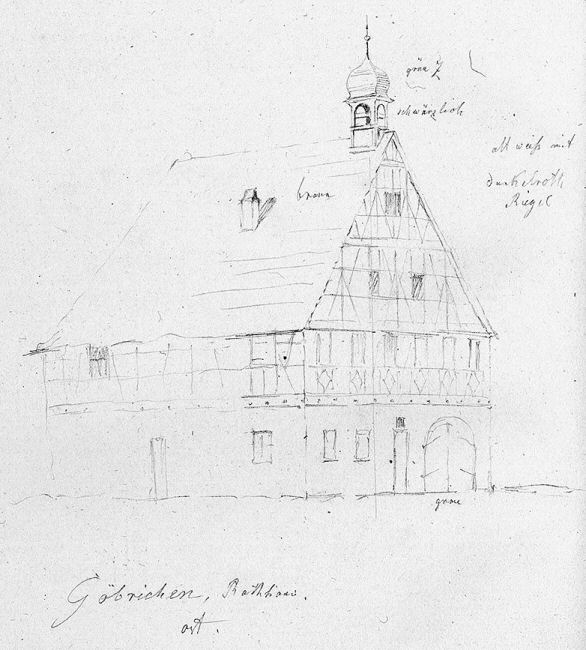 grün
schwärzlich
all weiß mit
dunkelroth
Riegel
braun
grau
Göbrichen, Rathhaus.
ost.